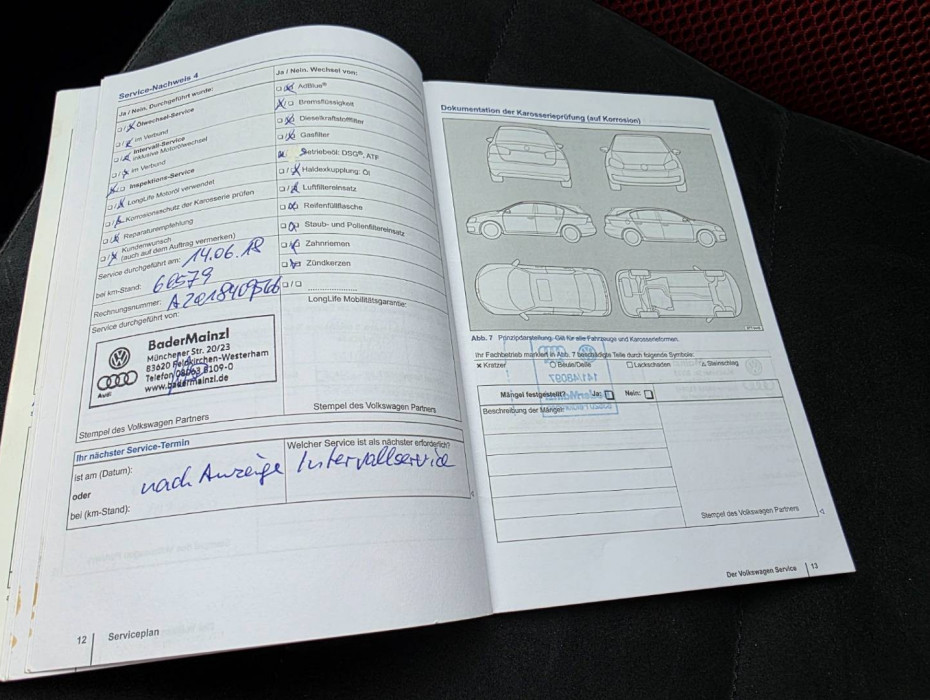 Service-Nachweis 4
Ja / Nein. Durchgeführt wurde:
Ölwechsel-Service
im Verbund
Intervall-Service
inklusive Motorölwechsel
im Verbund
Inspektions-Service
LongLife Motoröl verwendet
Korrosionsschutz der Karosserie prüfen
Reparaturempfehlung
Kundenwunsch
(auch auf dem Auftrag vermerken)
Service durchgeführt am: 14.06.18
bei km-Stand: 66579
Rechnungsnummer:
Service durchgeführt von:
BaderMainzl
Münchener Str. 20/23
83620 Feldkirchen-Westerham
Telefon 08063 8109-0
www.badermainzl.de
Audi
Stempel des Volkswagen Partners
Ja / Nein. Wechsel von:
AdBlue®
Bremsflüssigkeit
Dieselkraftstofffilter
Gasfilter
Getriebeöl: DSG®, ATF
Haldexkupplung: Öl
Luftfiltereinsatz
Reifenfüllflasche
Staub- und Pollenfiltereinsatz
Zahnriemen
Zündkerzen
LongLife Mobilitätsgarantie:
Stempel des Volkswagen Partners
Ihr nächster Service-Termin
ist am (Datum):
oder
bei (km-Stand):
nach Anzeige
Welcher Service ist als nächster erforderlich?
Intervallservice
12 Serviceplan
Dokumentation der Karosserieprüfung (auf Korrosion)
Abb. 7 Prinzipdarstellung. Gilt für alle Fahrzeuge und Karosserieformen.
Ihr Fachbetrieb markiert in Abb. 7 beschädigte Teile durch folgende Symbole:
x Kratzer ○ Beule/Delle □ Lackschäden △ Steinschlag
Mängel festgestellt? Ja: Nein:
Beschreibung der Mängel:
Stempel des Volkswagen Partners
Der Volkswagen Service 13